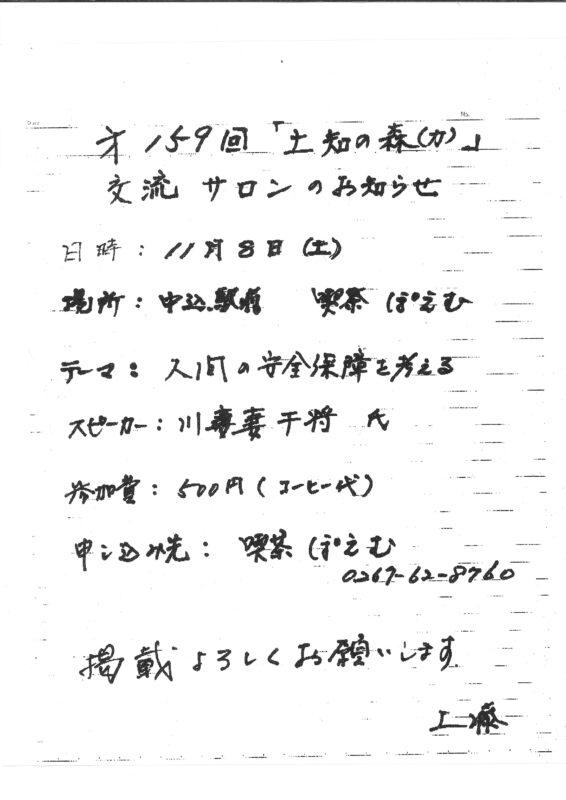 Date
No.
才159回「土知の森(力)」
交流サロンのお知らせ
日時：11月8日(土)
場所：中込駅前 喫茶 ぽえむ
テーマ：人間の安全保障を考える
スピーカー：川妻干将 氏
参加費：500円(コーヒー代)
申し込み先：喫茶 ぽえむ
0267-62-8760
掲載よろしくお願いします